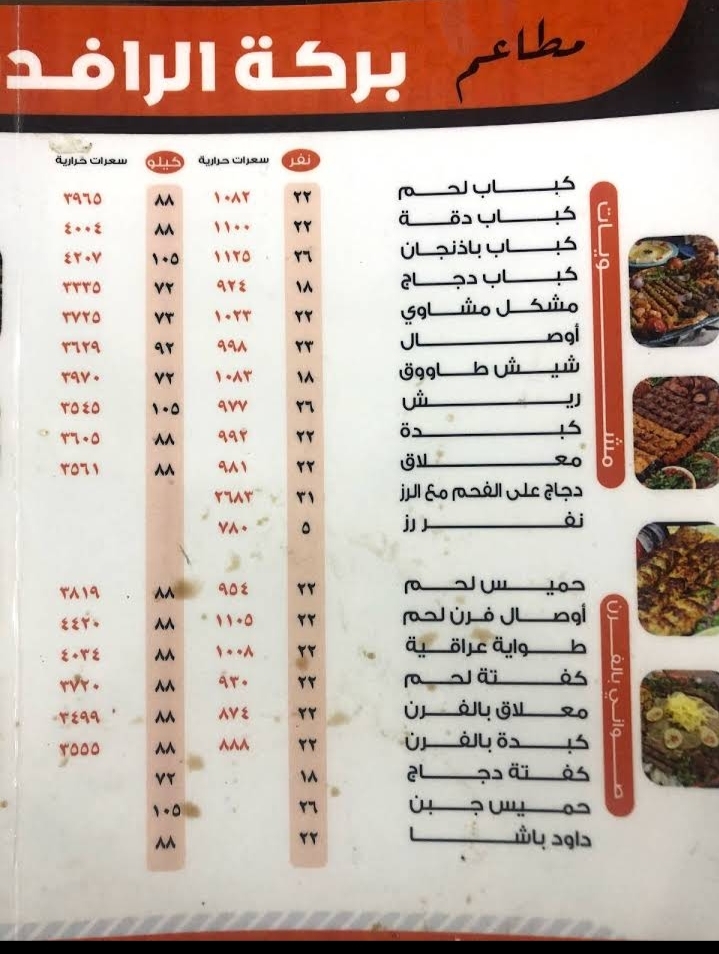 مطاعم بركة الرافد
نفر سعرات حرارية كيلو سعرات حرارية
مشويات
كباب لحم ٢٢ ١٠٨٢ ٨٨ ٣٩٦٥
كباب دقة ٢٢ ١١٠٠ ٨٨ ٤٠٠٤
كباب باذنجان ٢٦ ١١٢٥ ١٠٥ ٤٢٠٧
كباب دجاج ١٨ ٩٢٤ ٧٢ ٣٣٣٥
مشكل مشاوي ٢٢ ١٠٢٣ ٧٣ ٣٧٢٥
أوصال ٢٣ ٩٩٨ ٩٢ ٣٦٢٩
شيش طاووق ١٨ ١٠٨٣ ٧٢ ٣٩٧٠
ريش ٢٦ ٩٧٧ ١٠٥ ٣٥٤٥
كبدة ٢٢ ٩٩٢ ٨٨ ٣٦٠٥
معلاق ٢٢ ٩٨١ ٨٨ ٣٥٦١
دجاج على الفحم مع الرز ٣١ ٢٦٨٣
نفر رز ٥ ٧٨٠
صواني بالفرن
حميس لحم ٢٢ ٩٥٤ ٨٨ ٣٨١٩
أوصال فرن لحم ٢٢ ١١٠٥ ٨٨ ٤٤٢٠
طواية عراقية ٢٢ ١٠٠٨ ٨٨ ٤٠٣٤
كفتة لحم ٢٢ ٩٣٠ ٨٨ ٣٧٢٠
معلاق بالفرن ٢٢ ٨٧٤ ٨٨ ٣٤٩٩
كبدة بالفرن ٢٢ ٨٨٨ ٨٨ ٣٥٥٥
كفتة دجاج ١٨ ٧٢
حميس جبن ٢٦ ١٠٥
داود باشا ٢٢ ٨٨